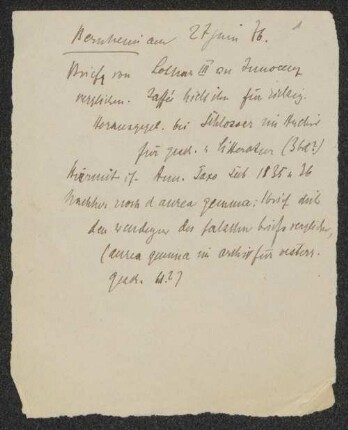 Bernheim am 27 Juni 86. 1
Brief von Lothar III an Innocenz
vergleichen. Jaffé hielt ihn für
Herausgegeb. bei Schlosser im Archiv
für gesch. u Litteratur (3bd?)
Hiermit cf. Ann. Saxo sub 1135 u 36
Nachher noch d aurea gemma: Brief
den des falschen briefs vergleichen,
(aurea gemma in archiv für österr.
gesch. 42)